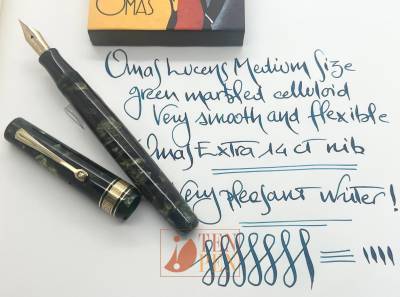 OMAS
Omas Lucens Medium Size
green marbled celluloid
Very smooth and flexible
Omas Extra 14 ct nib
Very pleasant writer!
TEN
PEN